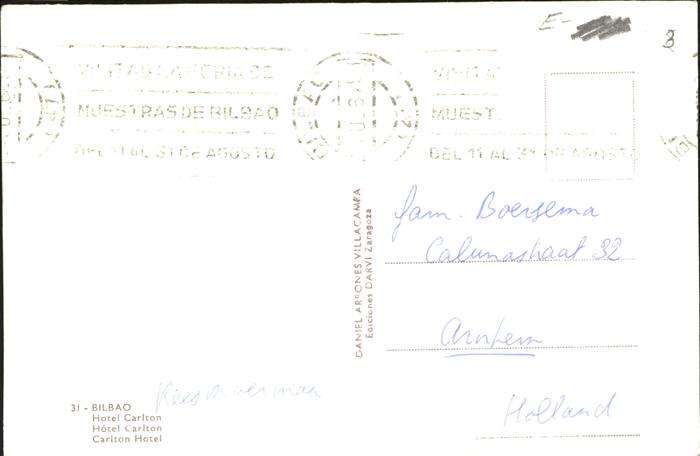 E-
3
VISITAD LA FERIA DE
MUESTRAS DE BILBAO
DEL 11 AL 31 DE AGOSTO
VISITAD
MUEST.
DEL 11 AL 31 DE AGOSTO
DANIEL ARBONES VILLACAMPA
Ediciones DARVI Zaragoza
fam. Boersema
Calunastraat 32
Arnhem
Holland
Kees
31 - BILBAO
Hotel Carlton
Hôtel Carlton
Carlton Hotel